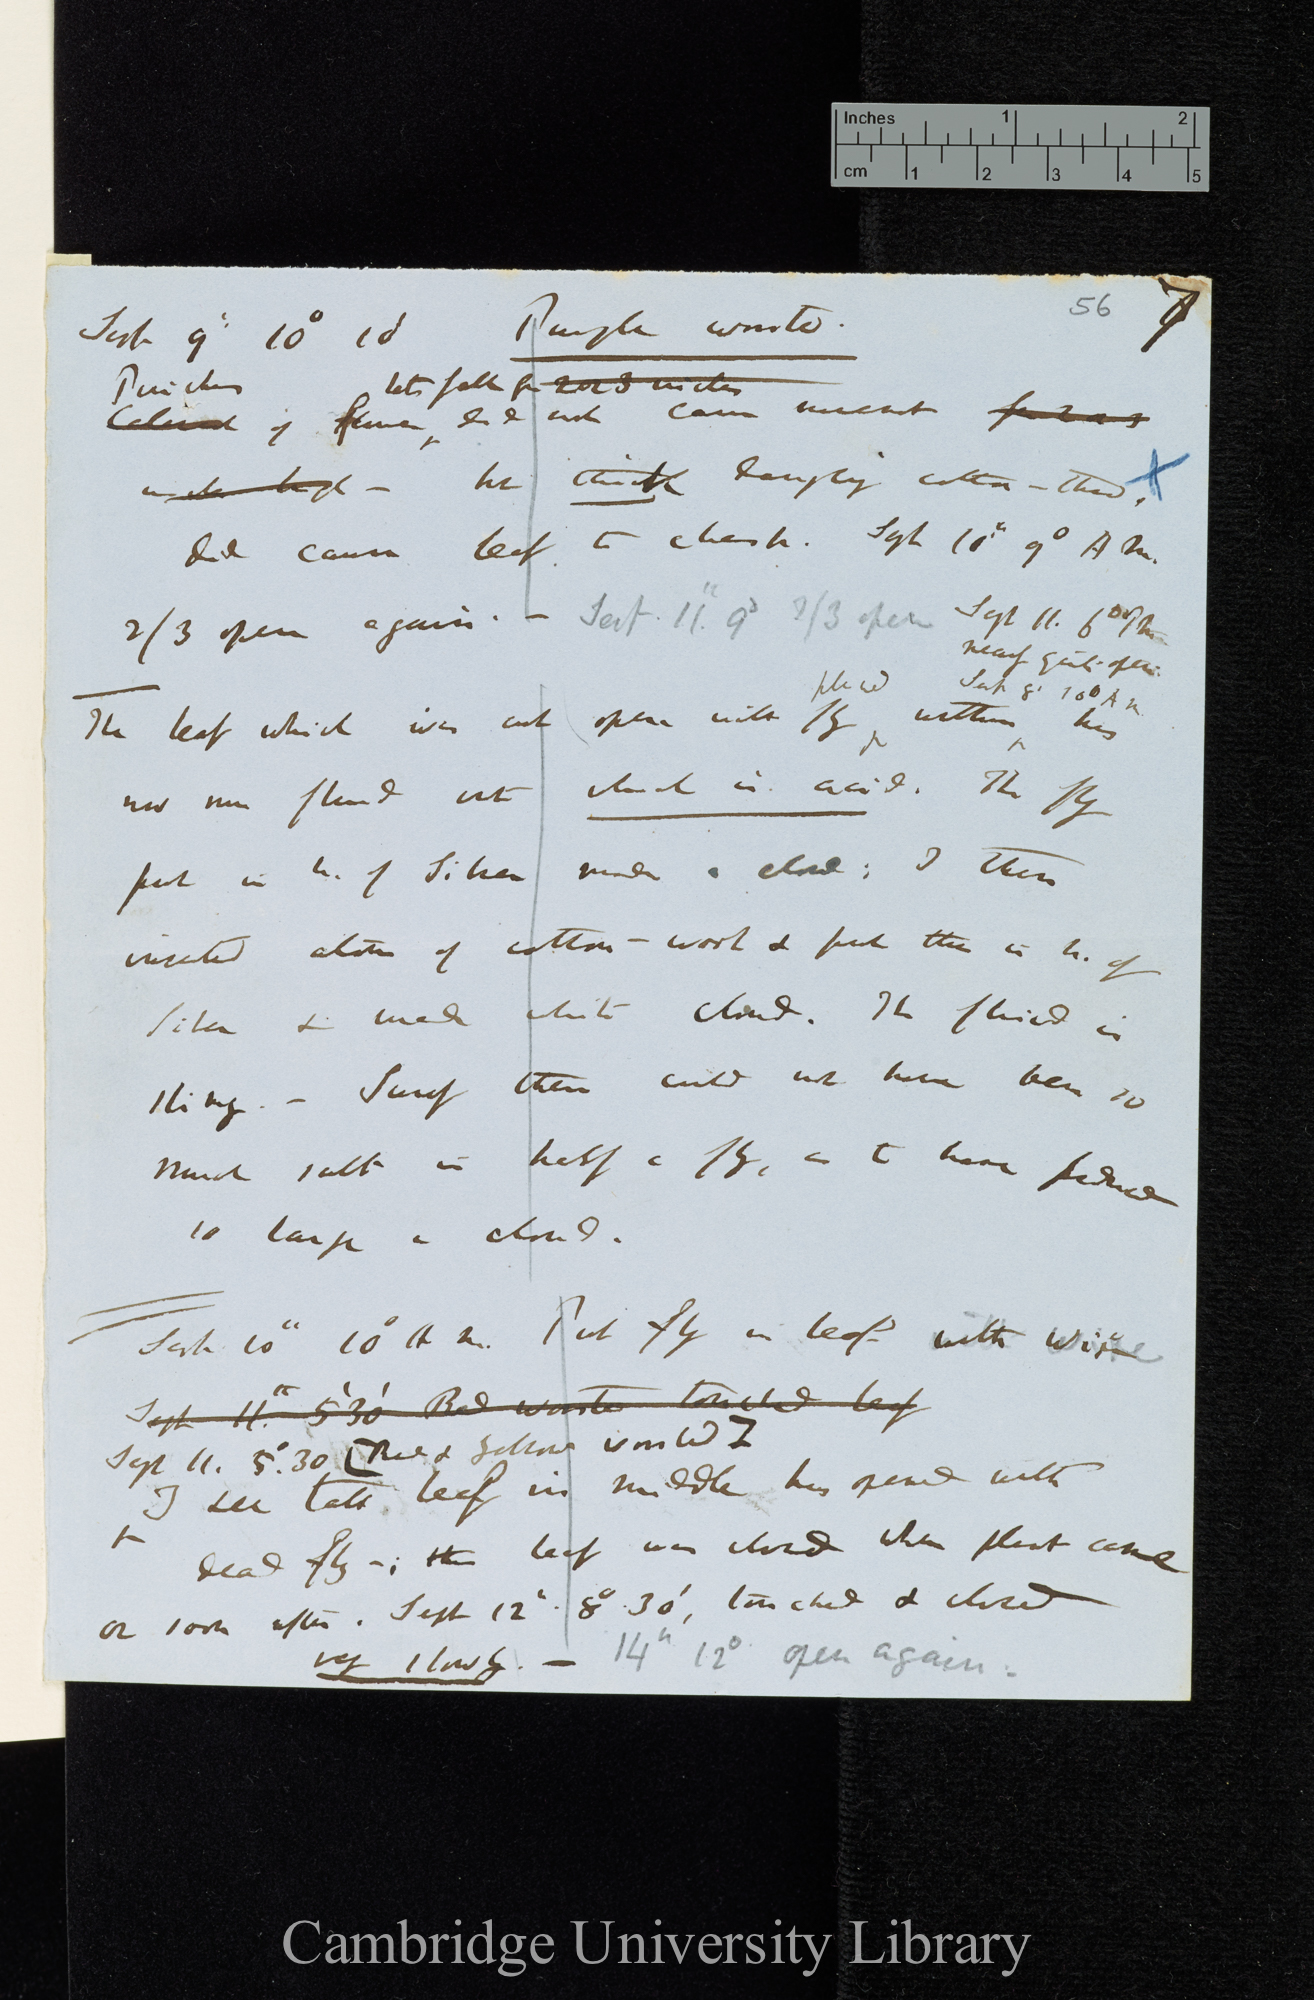 Inches 1 2
cm 1 2 3 4 5
56 7
Sept 9th 10° 10' Purple worsted.
Pinches let fall fr 2 or 3 inches
of flour, did not cause movement for 2 or 3
inches high — but thick dangling cotton-thread,
did cause leaf to clasp. Sept 10th 9° A m.
2/3 open again. — Sept. 11th. 9° 2/3 open Sept 11. 6° P m
nearly quite open.
placed Sept 8' 10° A m
The leaf which was cut open with fly within, has
now run fluid out which is acid. The fly
put in N. of Silver made a cloud; I then
inserted atom of cotton-wool & put this in N. of
Silver & made white cloud. The fluid is
slimy. — Surely there could not have been so
much salt in half a fly, as to have produced
so large a cloud.
Sept 10th 10° A m. Put fly in leaf with wire
Sept 11th 5° 30' Red worsted touched leaf
Sept 11. 5°.30 [Red & Yellow worsted]
I see tall leaf in middle has opened with
dead fly —; the leaf was closed when plant came
or soon after. Sept 12th 8° 30', touched & closed
very slowly. — 14th 12° open again.
Cambridge University Library